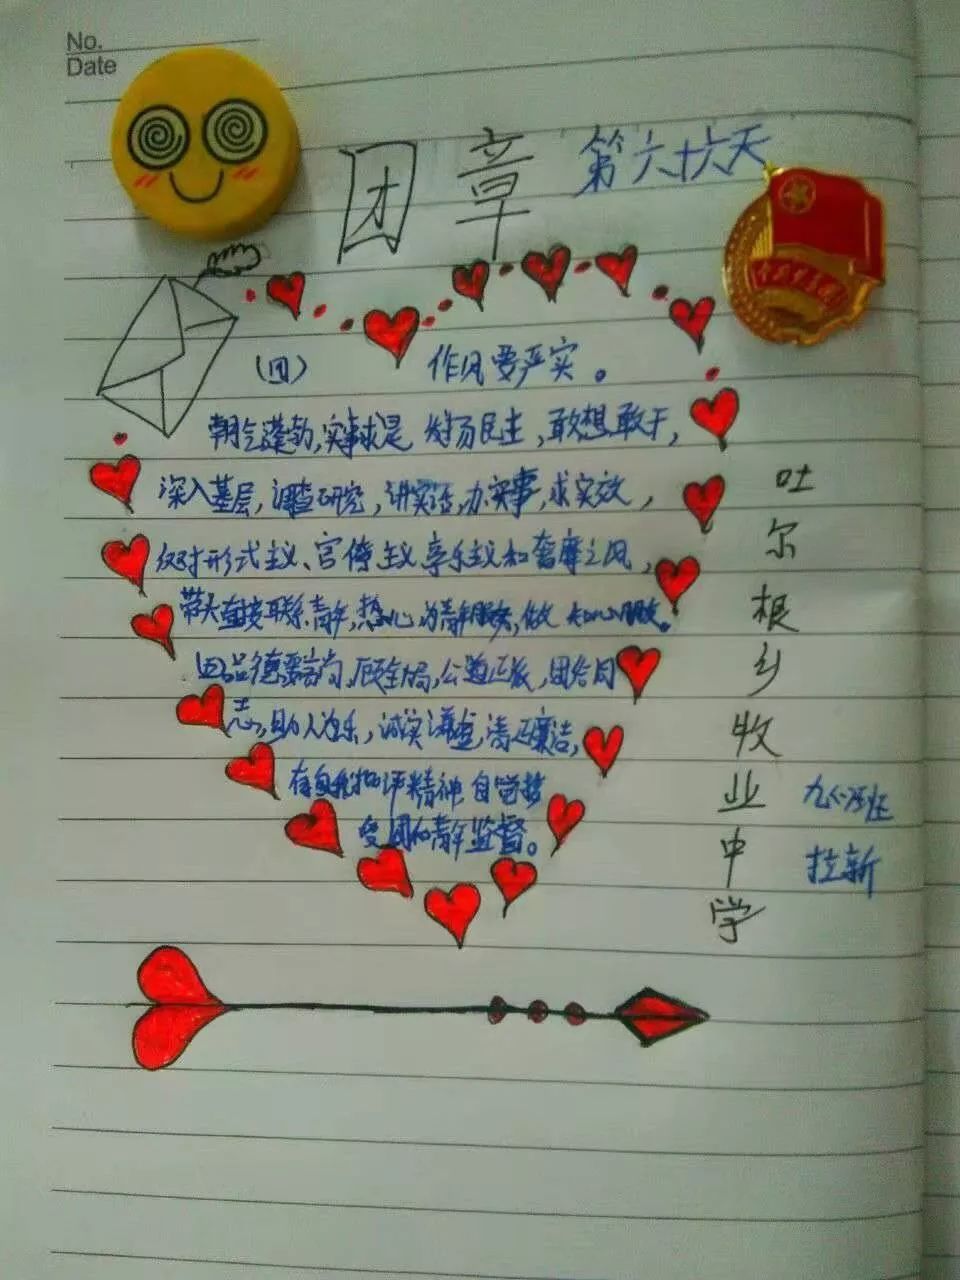 No.
Date
团章
第六十六天
(四) 作风要严实。
朝气蓬勃,实事求是 发扬民主,敢想敢干,
深入基层,调查研究,讲实话,办实事,求实效,
反对形式主义、官僚主义、享乐主义和奢靡之风,
带头直接联系青年,热心为青年服务,做知心朋友。
四品德要高尚、顾全局,公道正派,团结同
志,助人为乐,诚实谦虚,清正廉洁,
有自我批评精神,自觉接
受团和青年监督。
吐尔根乡牧业中学
九(八)班
拉新